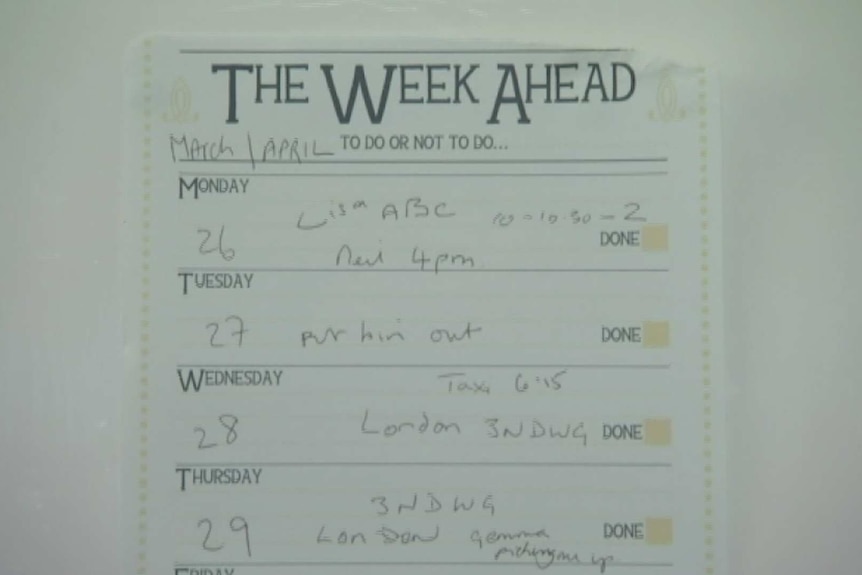 THE WEEK AHEAD
MARCH / APRIL TO DO OR NOT TO DO...
MONDAY
Lisa ABC 10-10.30-2
26 DONE
Neil 4pm
TUESDAY
27 put bin out DONE
WEDNESDAY
Taxi 6:15
28 London 3NDWG DONE
THURSDAY
3NDWG
29 LONDON gemma DONE
picking me up
FRIDAY